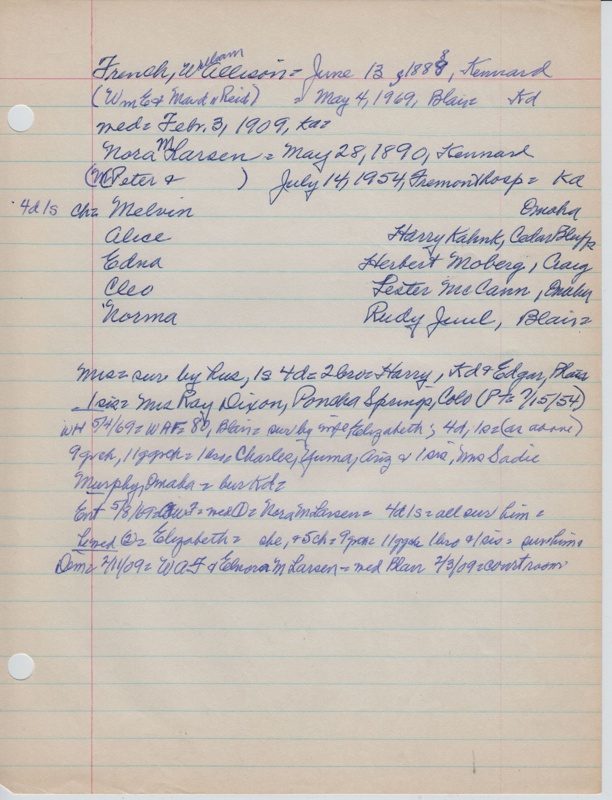 French, W Allison = June 13, 1888, Kennard
William
(Wm E & Maud Reid) = May 4, 1969, Blair = Kd
med = Febr. 3, 1909, Ka =
Nora M Larsen = May 28, 1890, Kennard
(Peter & ) July 14, 1954, Fremont Hosp = Kd
4d 1s ch = Melvin Omaha
Alice Harry Kahnk, Cedar Bluffs
Edna Herbert Moberg, Craig
Cleo Lester McCann, Omaha
Norma Rudy Juul, Blair =
Mrs = sur by hus, 1s 4d = 2 bro = Harry, Kd & Edgar, Blair
1 sis = Mrs Ray Dixon, Poncha Springs, Colo (PT = 7/15/54)
WH 5/4/69 = WAF = 80, Blair = sur by wife Elizabeth; 4d, 1s = (as above)
9 grch, 11 ggrch = 1 bro Charles, Yuma, Ariz & 1 sis, Mrs Sadie
Murphy, Omaha = bur Kd =
Ent 5/8/69 = = med = Nora M Larsen = 4d 1s = all sur him =
med = Elizabeth = she, & 5 ch = 9 grch 11 ggch 1 bro & 1 sis = sur him =
Dem = 2/11/09 = W A F & Elnora M Larsen = med Blair 2/3/09 = court room